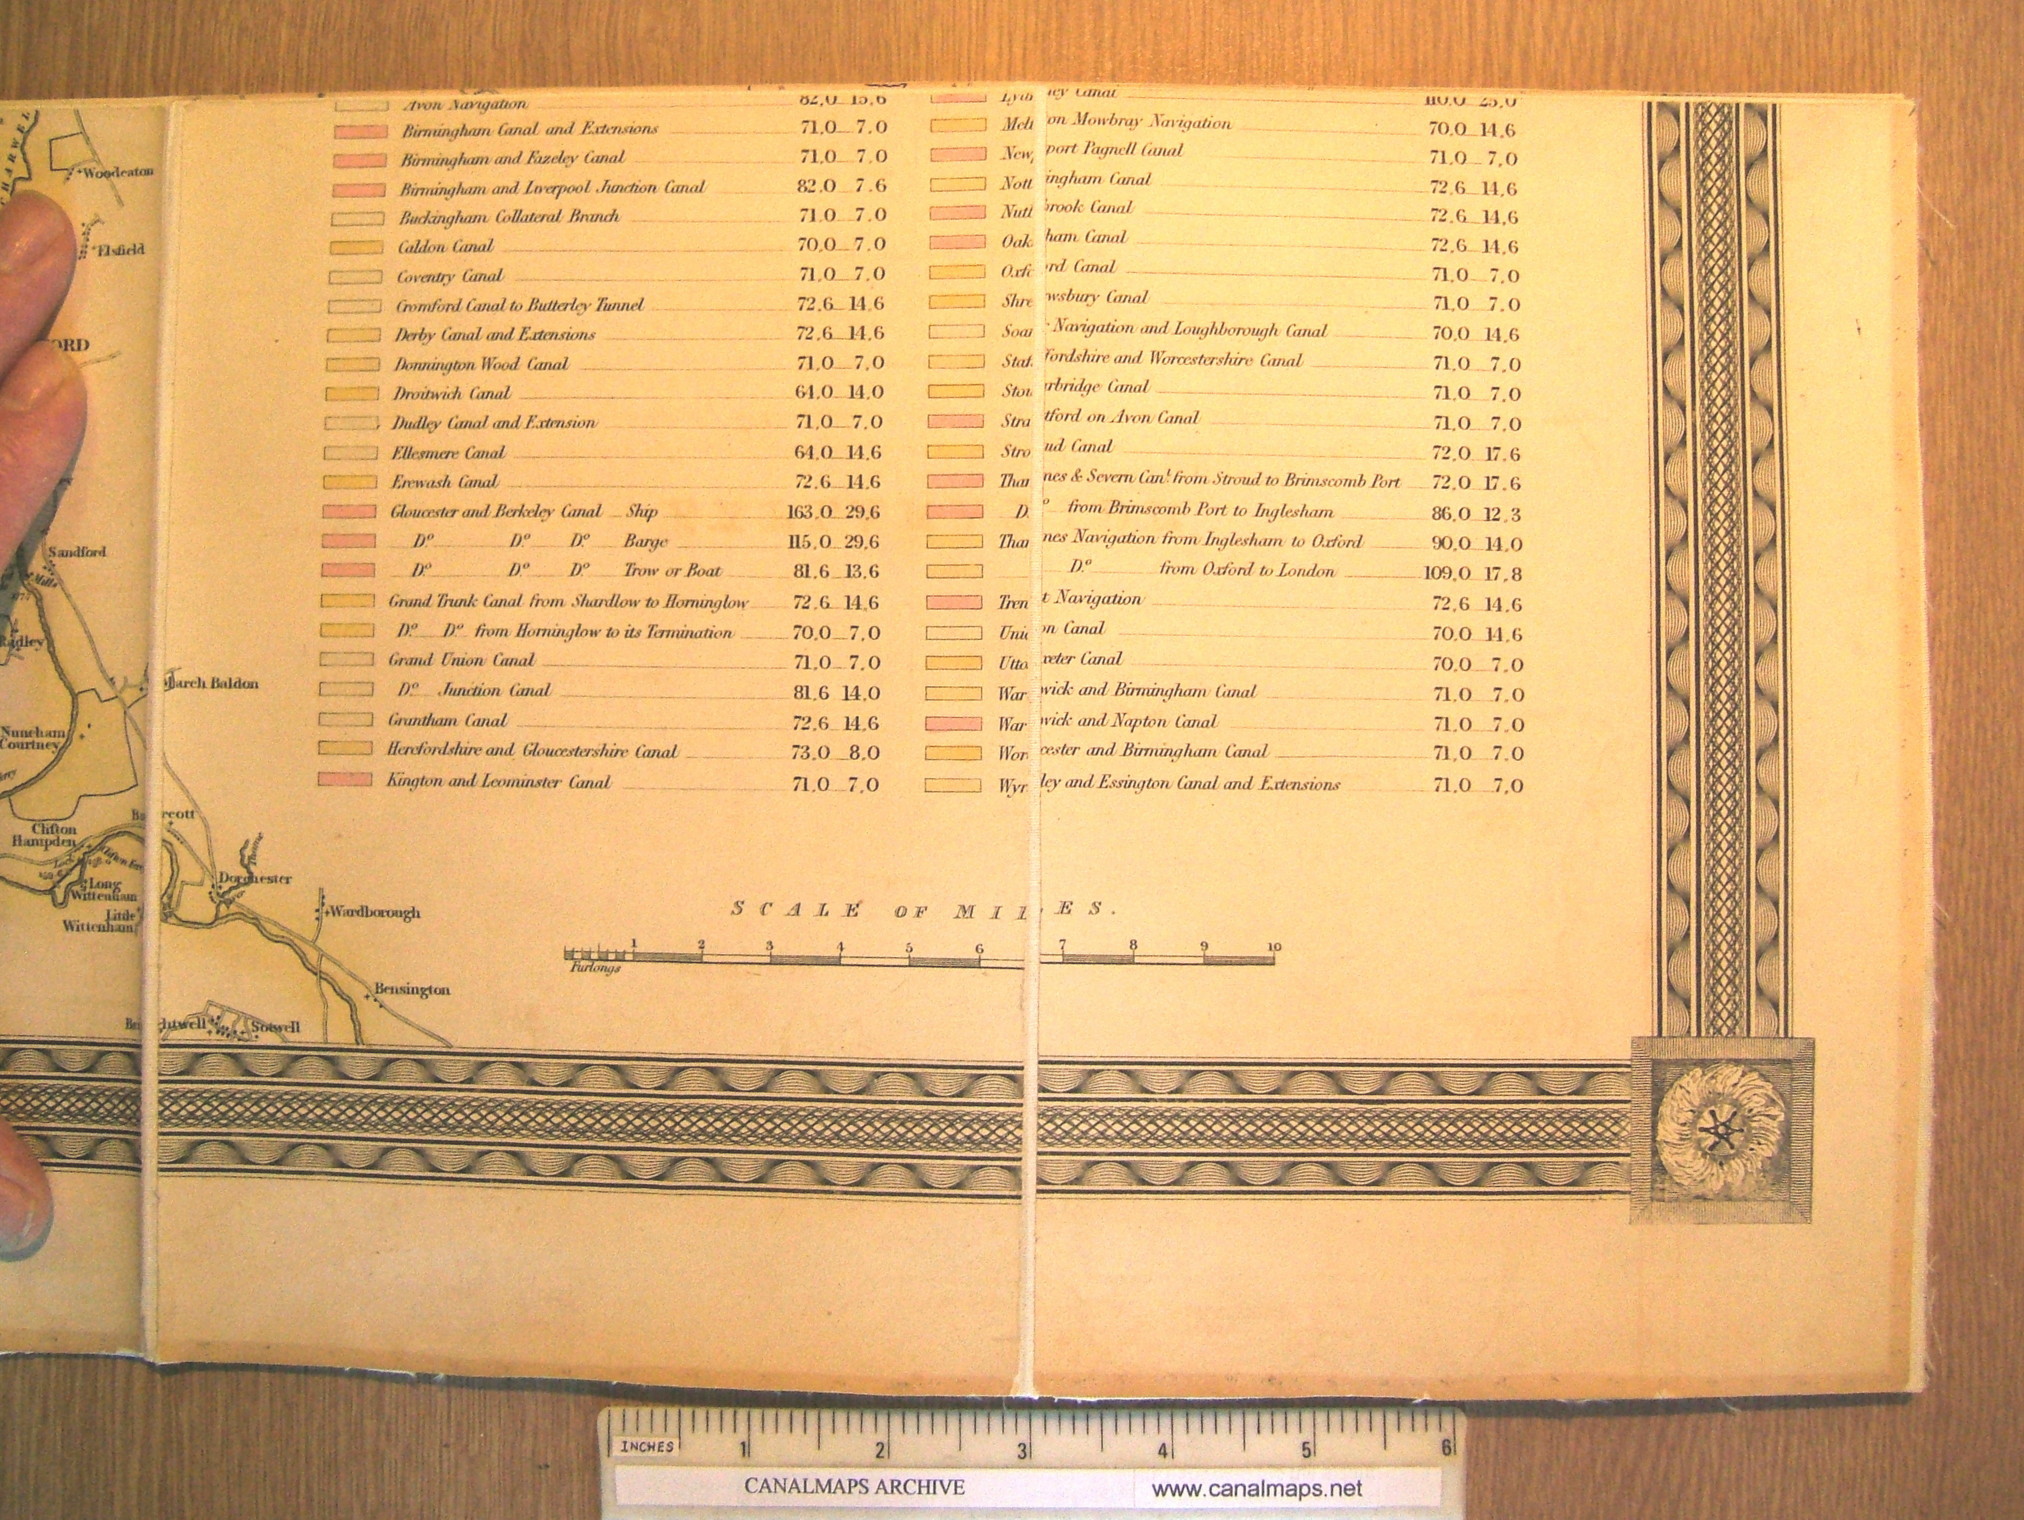 Woodeaton
Elsfield
Sandford
Radley
March Baldon
Nuneham
Courtney
Clifton
Hampden
Long
Wittenham
Little
Wittenham
Dorchester
Wardborough
Bensington
Brightwell
Sotwell
Avon Navigation 82,0 15,6
Birmingham Canal and Extensions 71,0 7,0
Birmingham and Fazeley Canal 71,0 7,0
Birmingham and Liverpool Junction Canal 82,0 7,6
Buckingham Collateral Branch 71,0 7,0
Caldon Canal 70,0 7,0
Coventry Canal 71,0 7,0
Cromford Canal to Butterley Tunnel 72,6 14,6
Derby Canal and Extensions 72,6 14,6
Donnington Wood Canal 71,0 7,0
Droitwich Canal 64,0 14,0
Dudley Canal and Extension 71,0 7,0
Ellesmere Canal 64,0 14,6
Erewash Canal 72,6 14,6
Gloucester and Berkeley Canal Ship 163,0 29,6
Dº Dº Dº Barge 115,0 29,6
Dº Dº Dº Trow or Boat 81,6 13,6
Grand Trunk Canal from Shardlow to Horninglow 72,6 14,6
Dº Dº from Horninglow to its Termination 70,0 7,0
Grand Union Canal 71,0 7,0
Dº Junction Canal 81,6 14,0
Grantham Canal 72,6 14,6
Herefordshire and Gloucestershire Canal 73,0 8,0
Kington and Leominster Canal 71,0 7,0
Lydney Canal 110,0 25,0
Melton Mowbray Navigation 70,0 14,6
Newport Pagnell Canal 71,0 7,0
Nottingham Canal 72,6 14,6
Nutbrook Canal 72,6 14,6
Oakham Canal 72,6 14,6
Oxford Canal 71,0 7,0
Shrewsbury Canal 71,0 7,0
Soar Navigation and Loughborough Canal 70,0 14,6
Staffordshire and Worcestershire Canal 71,0 7,0
Stourbridge Canal 71,0 7,0
Stratford on Avon Canal 71,0 7,0
Stroud Canal 72,0 17,6
Thames & Severn Canl from Stroud to Brimscomb Port 72,0 17,6
Dº from Brimscomb Port to Inglesham 86,0 12,3
Thames Navigation from Inglesham to Oxford 90,0 14,0
Dº from Oxford to London 109,0 17,8
Trent Navigation 72,6 14,6
Union Canal 70,0 14,6
Uttoxeter Canal 70,0 7,0
Warwick and Birmingham Canal 71,0 7,0
Warwick and Napton Canal 71,0 7,0
Worcester and Birmingham Canal 71,0 7,0
Wyrley and Essington Canal and Extensions 71,0 7,0
SCALE OF MILES.
1 2 3 4 5 6 7 8 9 10
Furlongs
INCHES 1 2 3 4 5 6
CANALMAPS ARCHIVE www.canalmaps.net